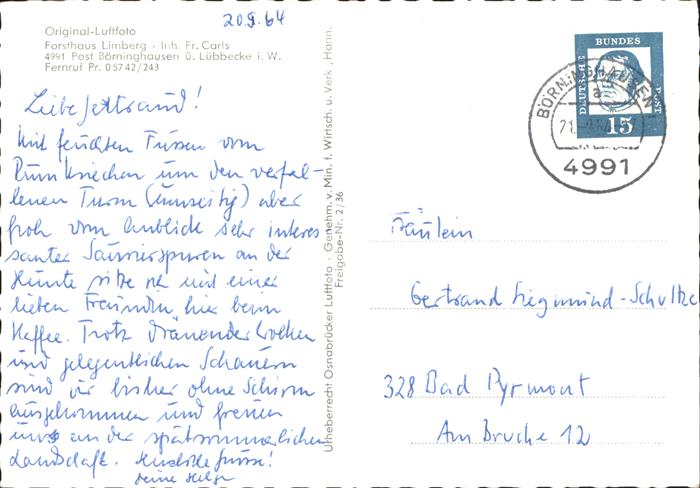 20.9.64
Original-Luftfoto
Forsthaus Limberg · Inh. Fr. Carls
4991 Post Börninghausen ü. Lübbecke i. W.
Fernruf Pr. 05742/243
Liebe Gertraud!
Mit feuchten Füssen vom
Rumkriechen um den verfal-
lenen Turm (umseitig) aber
froh vom Anblick sehr interes
santer Saurierspuren an der
Hunte sitze ich mit einer
lieben Freundin hier beim
Kaffee. Trotz dräuender Wolken
und gelegentlichen Schauern
sind wir bisher ohne Schirm
ausgekommen und freuen
uns an der spätsommerlichen
Landschaft. Herzliche Grüsse!
Deine Helga
Urheberrecht Osnabrücker Luftfoto · Genehm. v. Min. f. Wirtsch. u. Verk., Hann.
Freigabe-Nr. 2/36
DEUTSCHE BUNDES POST
15
BÖRNINGHAUSEN
a
4991
Fräulein
Gertraud Siegmund-Schultze
328 Bad Pyrmont
Am Bruche 12